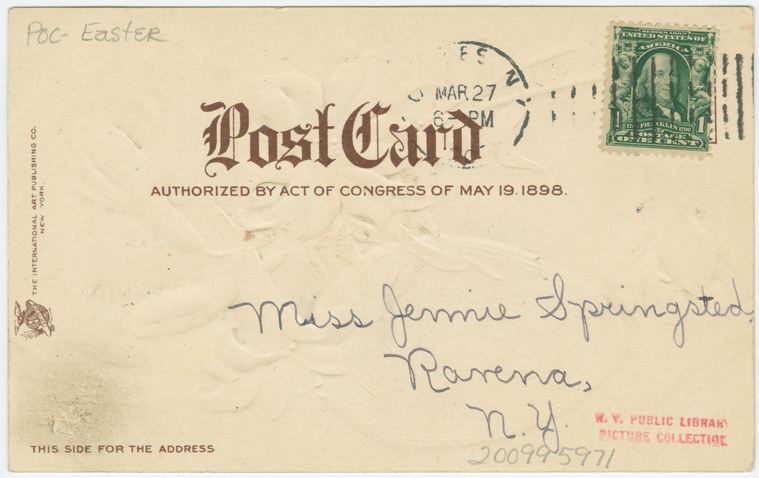 POC- Easter
MAR. 27
PM
SERIES 1902
UNITED STATES OF
AMERICA
FRANKLIN
POSTAGE
ONE CENT
1
Post Card
AUTHORIZED BY ACT OF CONGRESS OF MAY 19. 1898.
THE INTERNATIONAL ART PUBLISHING CO.
NEW YORK.
Miss Jennie Springsted
Ravena,
N.Y.
N. Y. PUBLIC LIBRARY
PICTURE COLLECTION
200995971
THIS SIDE FOR THE ADDRESS